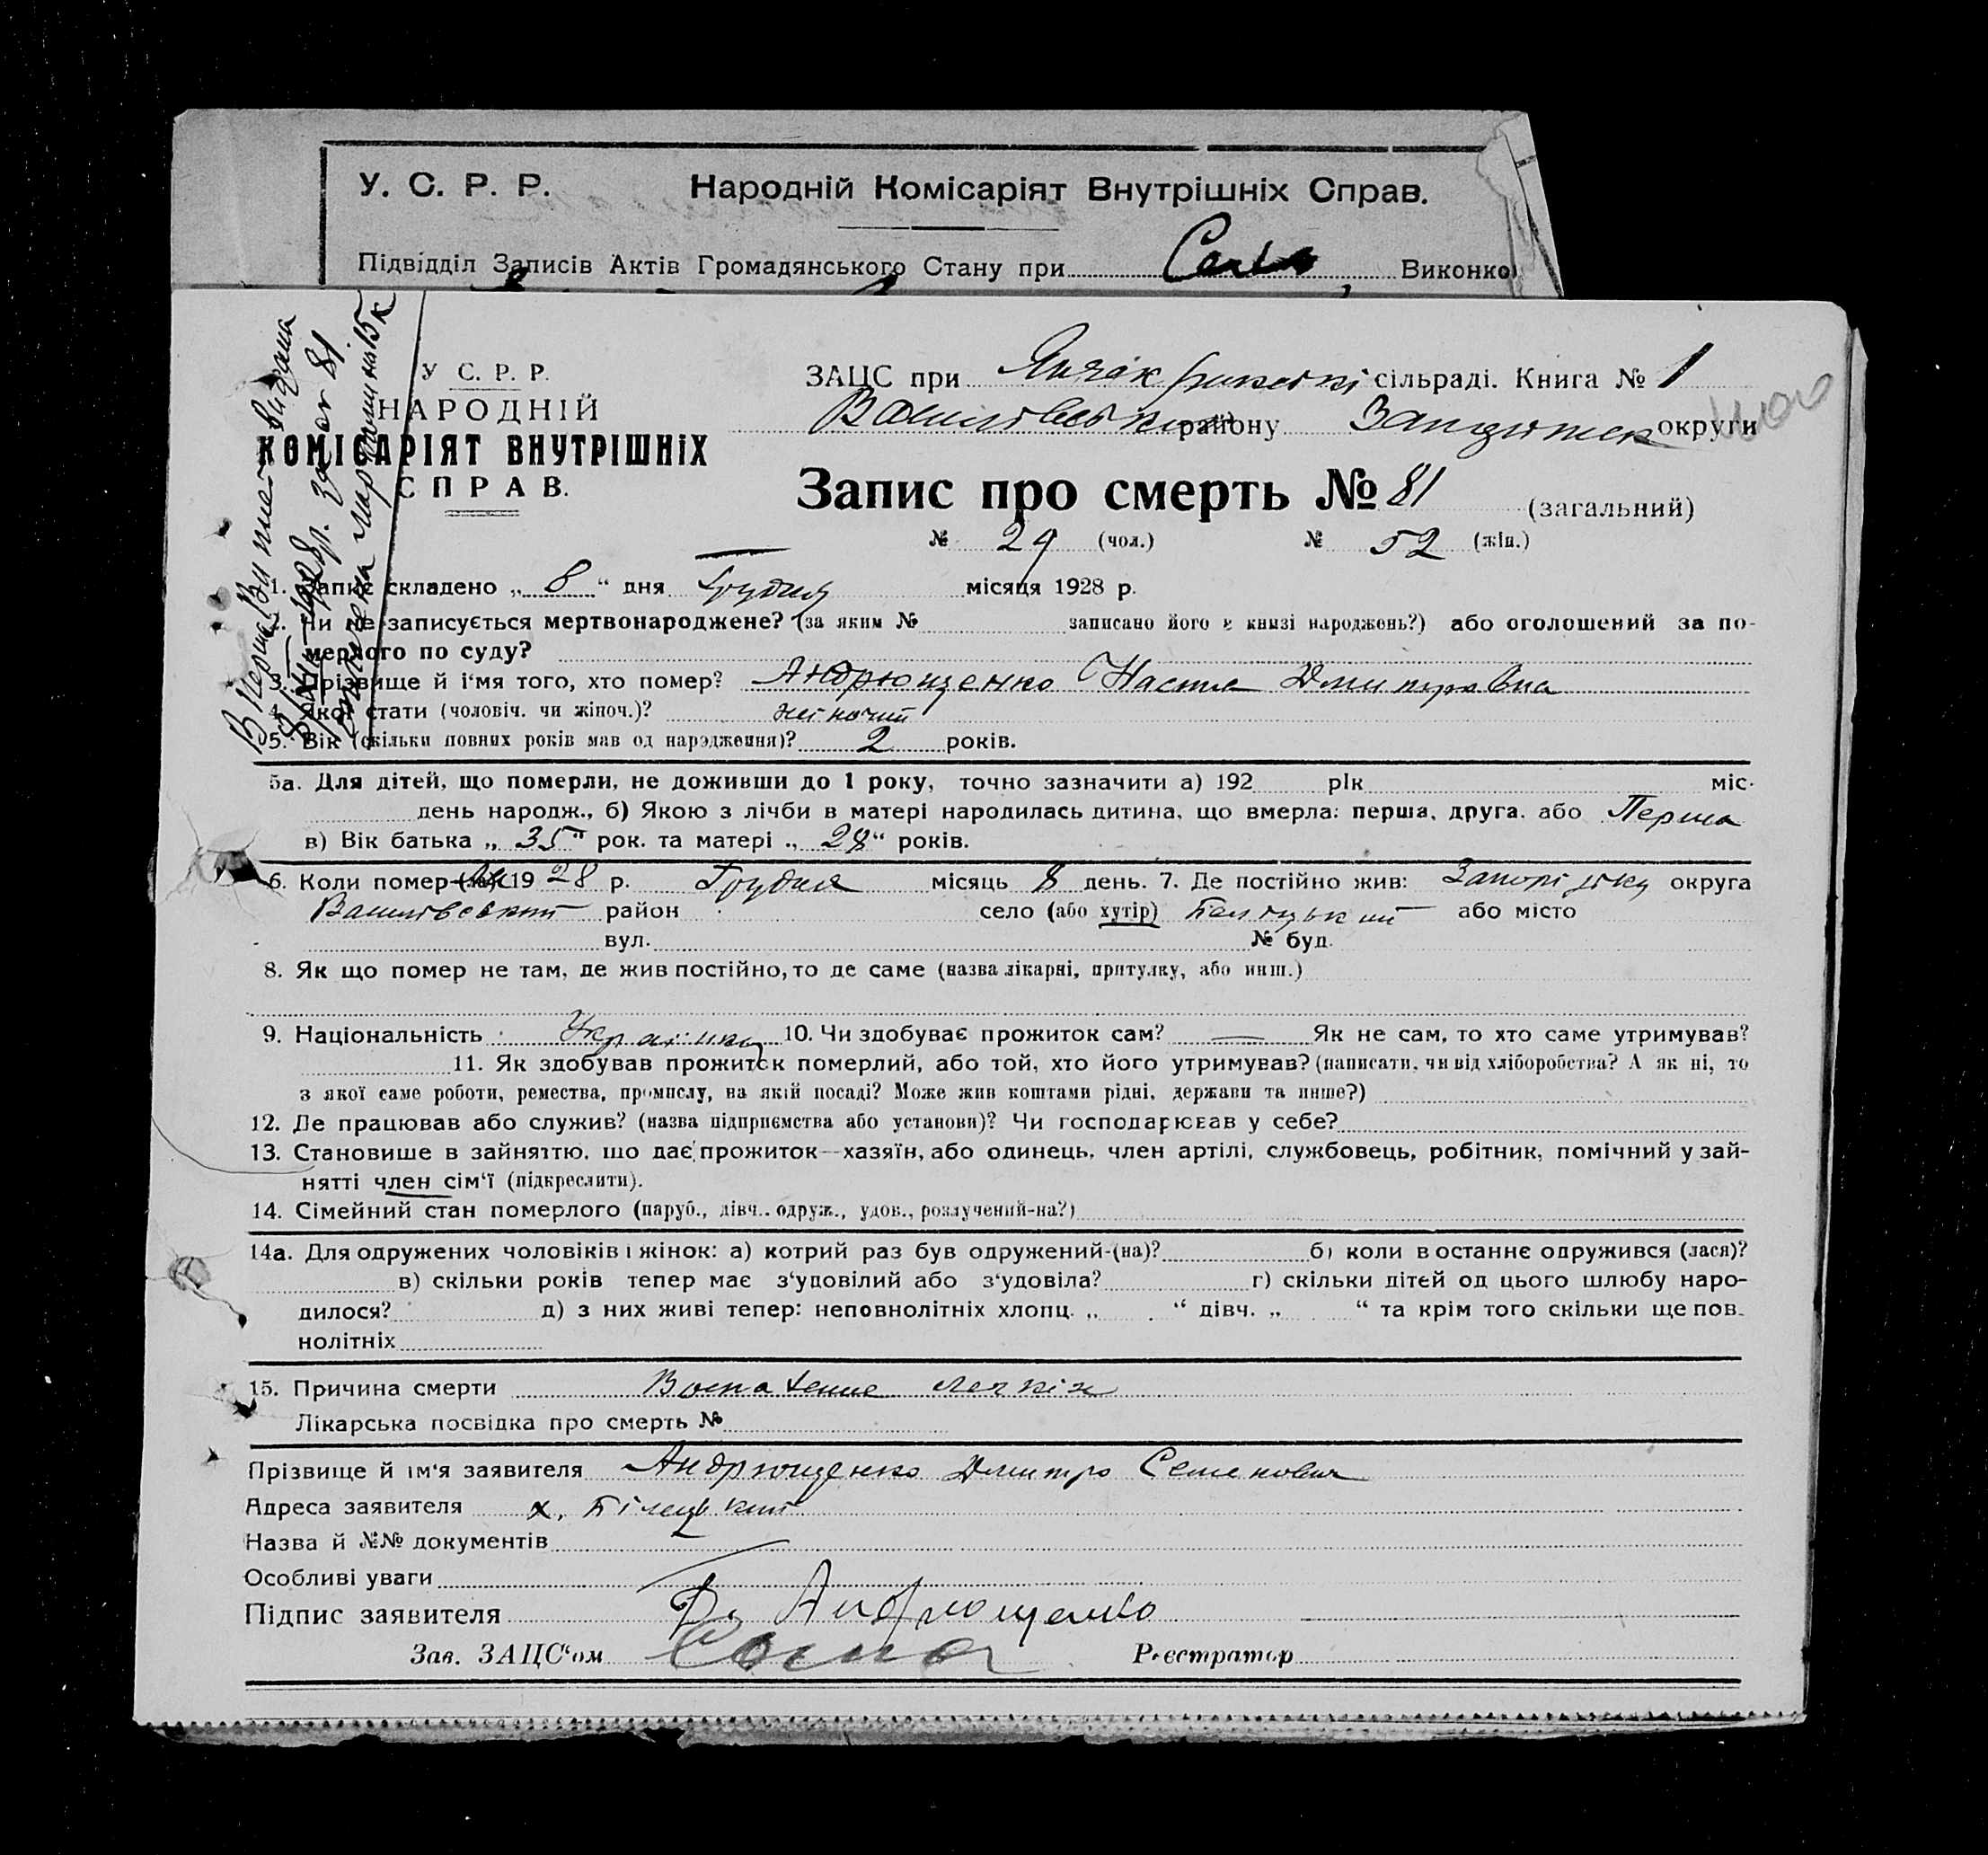 У. С. Р. Р. Народній Комісаріят Внутрішніх Справ.
Підвідділ Записів Актів Громадянського Стану при Виконко
У С. Р. Р.
НАРОДНІЙ
КОМІСАРІЯТ ВНУТРІШНІХ
СПРАВ.
ЗАЦС при сільраді. Книга № 1
Василівського району Запоріжск округи
Запис про смерть № 81 (загальний)
№ 29 (чол.) № 52 (жін.)
1. Запис складено „ 8 “ дня Грудня місяця 1928 р.
2. Чи не записується мертвонароджене? (за яким № записано його в книзі народжень?) або оголошений за по-
мерлого по суду?
3. Прізвище й і‘мя того, хто помер? Андрющенко Настя Дмитровна
4. Якої стати (чоловіч. чи жіноч.)? жіночий
5. Вік (скільки повних років мав од народження)? 2 років.
5а. Для дітей, що померли, не доживши до 1 року, точно зазначити а) 192 рік міс.
день народж., б) Якою з лічби в матері народилась дитина, що вмерла: перша, друга. або Перша
в) Вік батька „ 35 “ рок. та матері „ 28 “ років.
6. Коли помер (ла) 19 28 р. Грудня місяць 8 день. 7. Де постійно жив: Запорізьку округа
Василівський район село (або хутір) Білецький або місто
вул. № буд.
8. Як що помер не там, де жив постійно, то де саме (назва лікарні, притулку, або инш.)
9. Національність Українц 10. Чи здобуває прожиток сам? — Як не сам, то хто саме утримував?
11. Як здобував прожиток померлий, або той, хто його утримував? (написати, чи від хліборобства? А як ні, то
з якої саме роботи, ремества, промислу, на якій посаді? Може жив коштами рідні, держави та инше?)
12. Де працював або служив? (назва підприємства або установи)? Чи господарював у себе?
13. Становище в зайняттю, що дає прожиток—хазяїн, або одинець, член артілі, службовець, робітник, помічний у зай-
нятті член сім‘ї (підкреслити).
14. Сімейний стан померлого (паруб., дівч., одруж., удов., розлучений-на?)
14а. Для одружених чоловіків і жінок: а) котрий раз був одружений-(на)? б) коли востаннє одружився (лася)?
в) скільки років тепер має з‘удовілий або з‘удовіла? г) скільки дітей од цього шлюбу наро-
дилося? д) з них живі тепер: неповнолітніх хлопц. „ “ дівч. „ “ та крім того скільки ще пов-
нолітніх
15. Причина смерти Воспаление легкіх
Лікарська посвідка про смерть №
Прізвище й ім‘я заявителя Андрющенко Дмитро Семенович
Адреса заявителя х. Білецький
Назва й №№ документів
Особливі уваги
Підпис заявителя Андрющенко
Зав. ЗАЦС‘ом Реєстратор